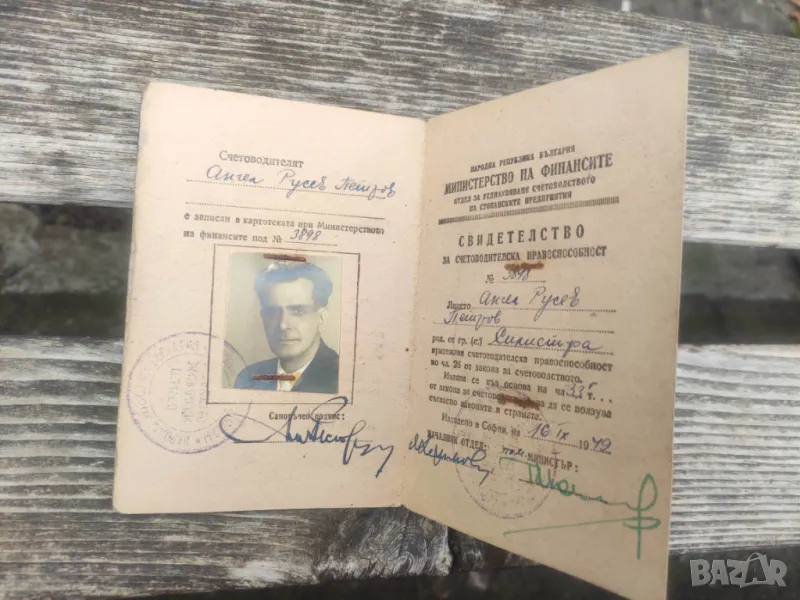 Счетоводителят
Ангел Русев Петров
е записан в картотеката при Министерството
на финансите под № 3898
Саморъчен подпис:
НАРОДНА РЕПУБЛИКА БЪЛГАРИЯ
МИНИСТЕРСТВО НА ФИНАНСИТЕ
ОТДЕЛ ЗА УЕДНАКВЯВАНЕ СЧЕТОВОДСТВОТО
НА СТОПАНСКИТЕ ПРЕДПРИЯТИЯ
СВИДЕТЕЛСТВО
ЗА СЧЕТОВОДИТЕЛСКА ПРАВОСПОСОБНОСТ
№ 3898
Лицето Ангел Русев
Петров
род. от гр. (с.) Силистра
притежава счетоводителска правоспособност
по чл. 26 от закона за счетоводството.
Издава се въз основа на чл. 33 т.
от закона за счетоводството да се ползува
съгласно законите в страната.
Издадено в София, на 10 IX 1949
НАЧАЛНИК ОТДЕЛ: пом. МИНИСТЪР:
BAZAR